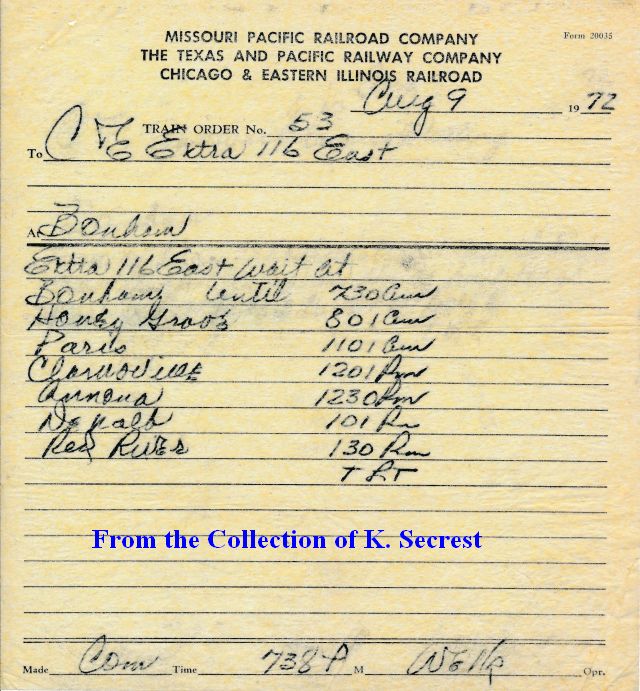 MISSOURI PACIFIC RAILROAD COMPANY
Form 20035
THE TEXAS AND PACIFIC RAILWAY COMPANY
CHICAGO & EASTERN ILLINOIS RAILROAD
Aug 9 1972
TRAIN ORDER No. 53
To C&E Extra 116 East
At Bonham
Extra 116 East wait at
Bonham until 730 am
Honey Grove 801 am
Paris 1101 am
Clarksville 1201 Pm
Annona 1230 Pm
DeKalb 101 Pm
Red River 130 Pm
From the Collection of K. Secrest
Made Com Time 738 P M Opr.